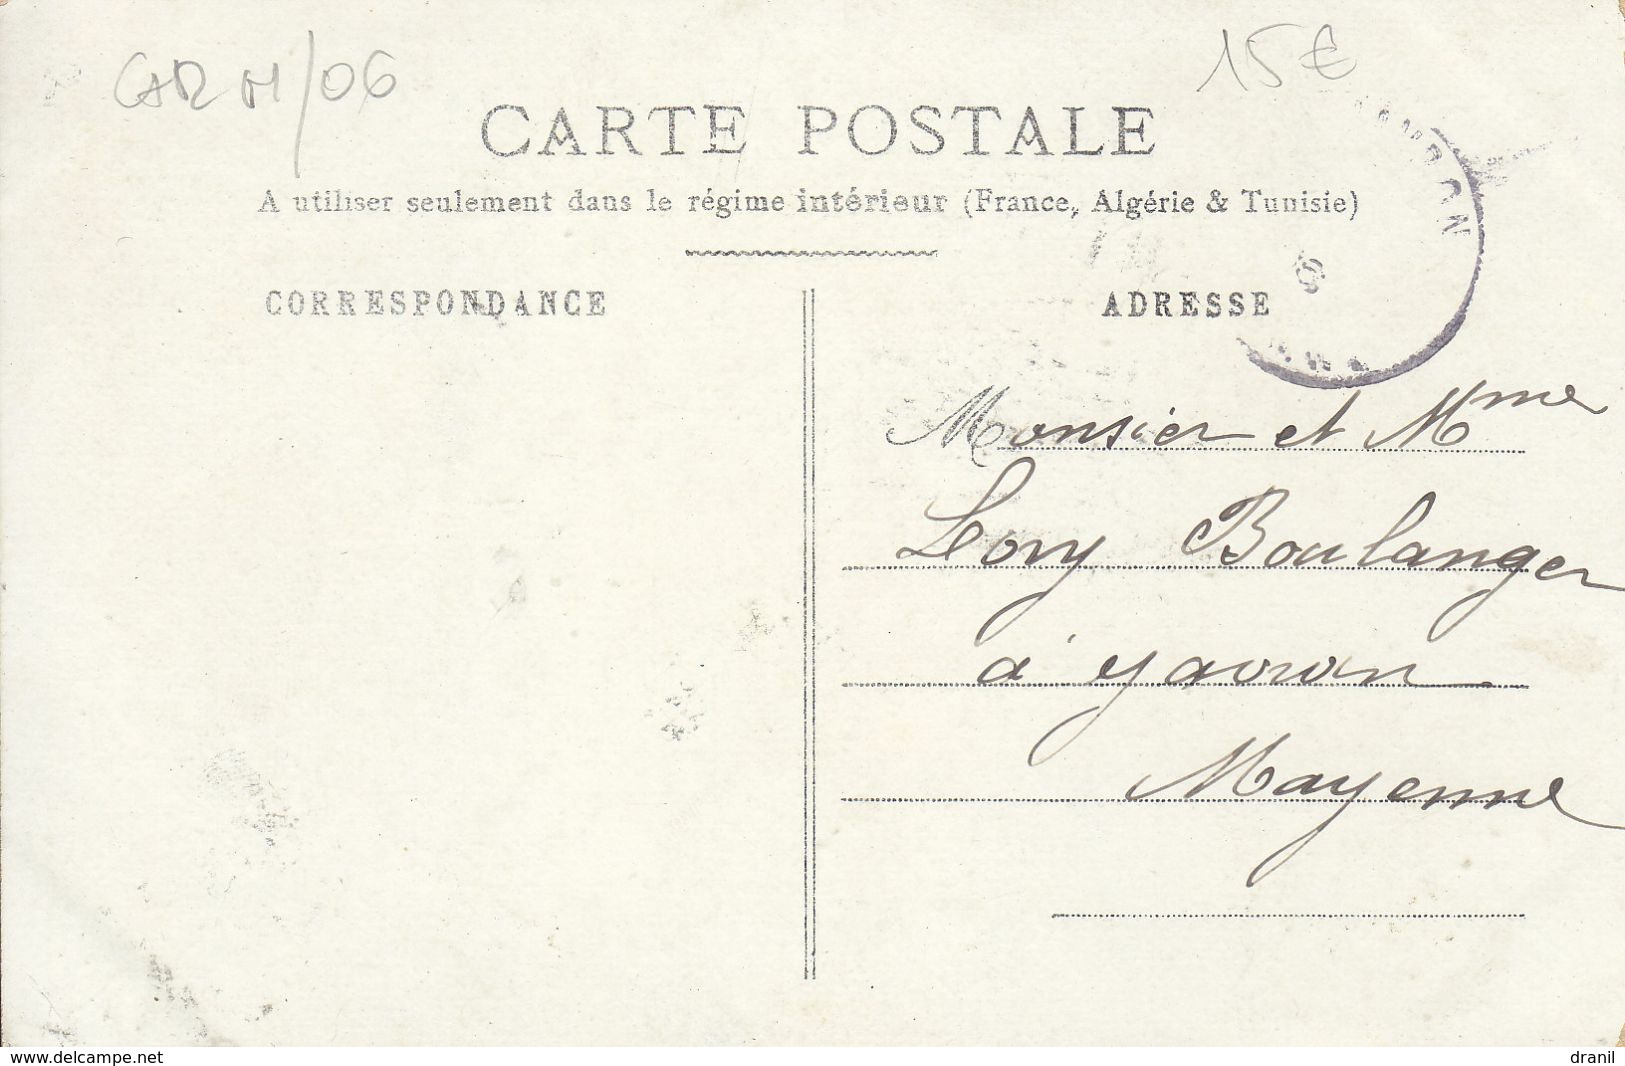 CARM/06
15€
CARTE POSTALE
A utiliser seulement dans le régime intérieur (France, Algérie & Tunisie)
CORRESPONDANCE
ADRESSE
Monsier et Mme
Lory Boulanger
à yavron
Mayenne
www.delcampe.net
dranil